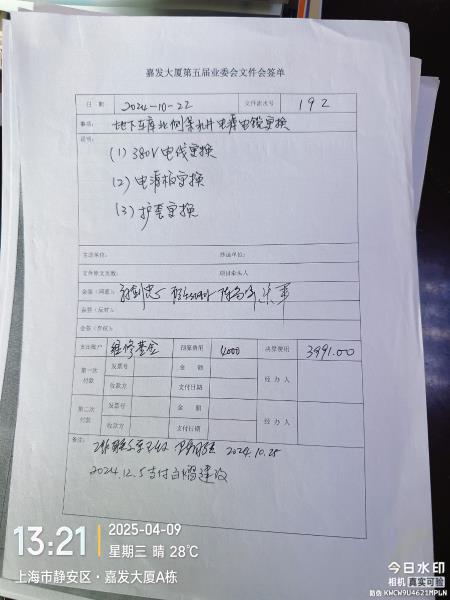 嘉发大厦第五届业委会文件会签单
日 期 2024-10-22 文件流水号 192
事项: 地下车库北侧集水井电源电缆更换
说明:
(1) 380V电线更换
(2) 电源柜更换
(3) 护套更换
主送单位: 抄送单位:
文件原文页数: 项目牵头人
会签(同意):
会签(反对):
会签(弃权):
支出账户 维修基金 预算费用 4000 决算费用 3991.00
第一次付款 发票号 金 额 经 办 人
收款方 支付日期
第二次付款 发票号 金 额 经 办 人
收款方 支付日期
备注: 2024.10.25
2024.12.5支付白熠建设
13:21 2025-04-09
星期三 晴 28℃
上海市静安区·嘉发大厦A栋
今日水印
相机 真实可验
防伪 KWCW9U4621MPLN